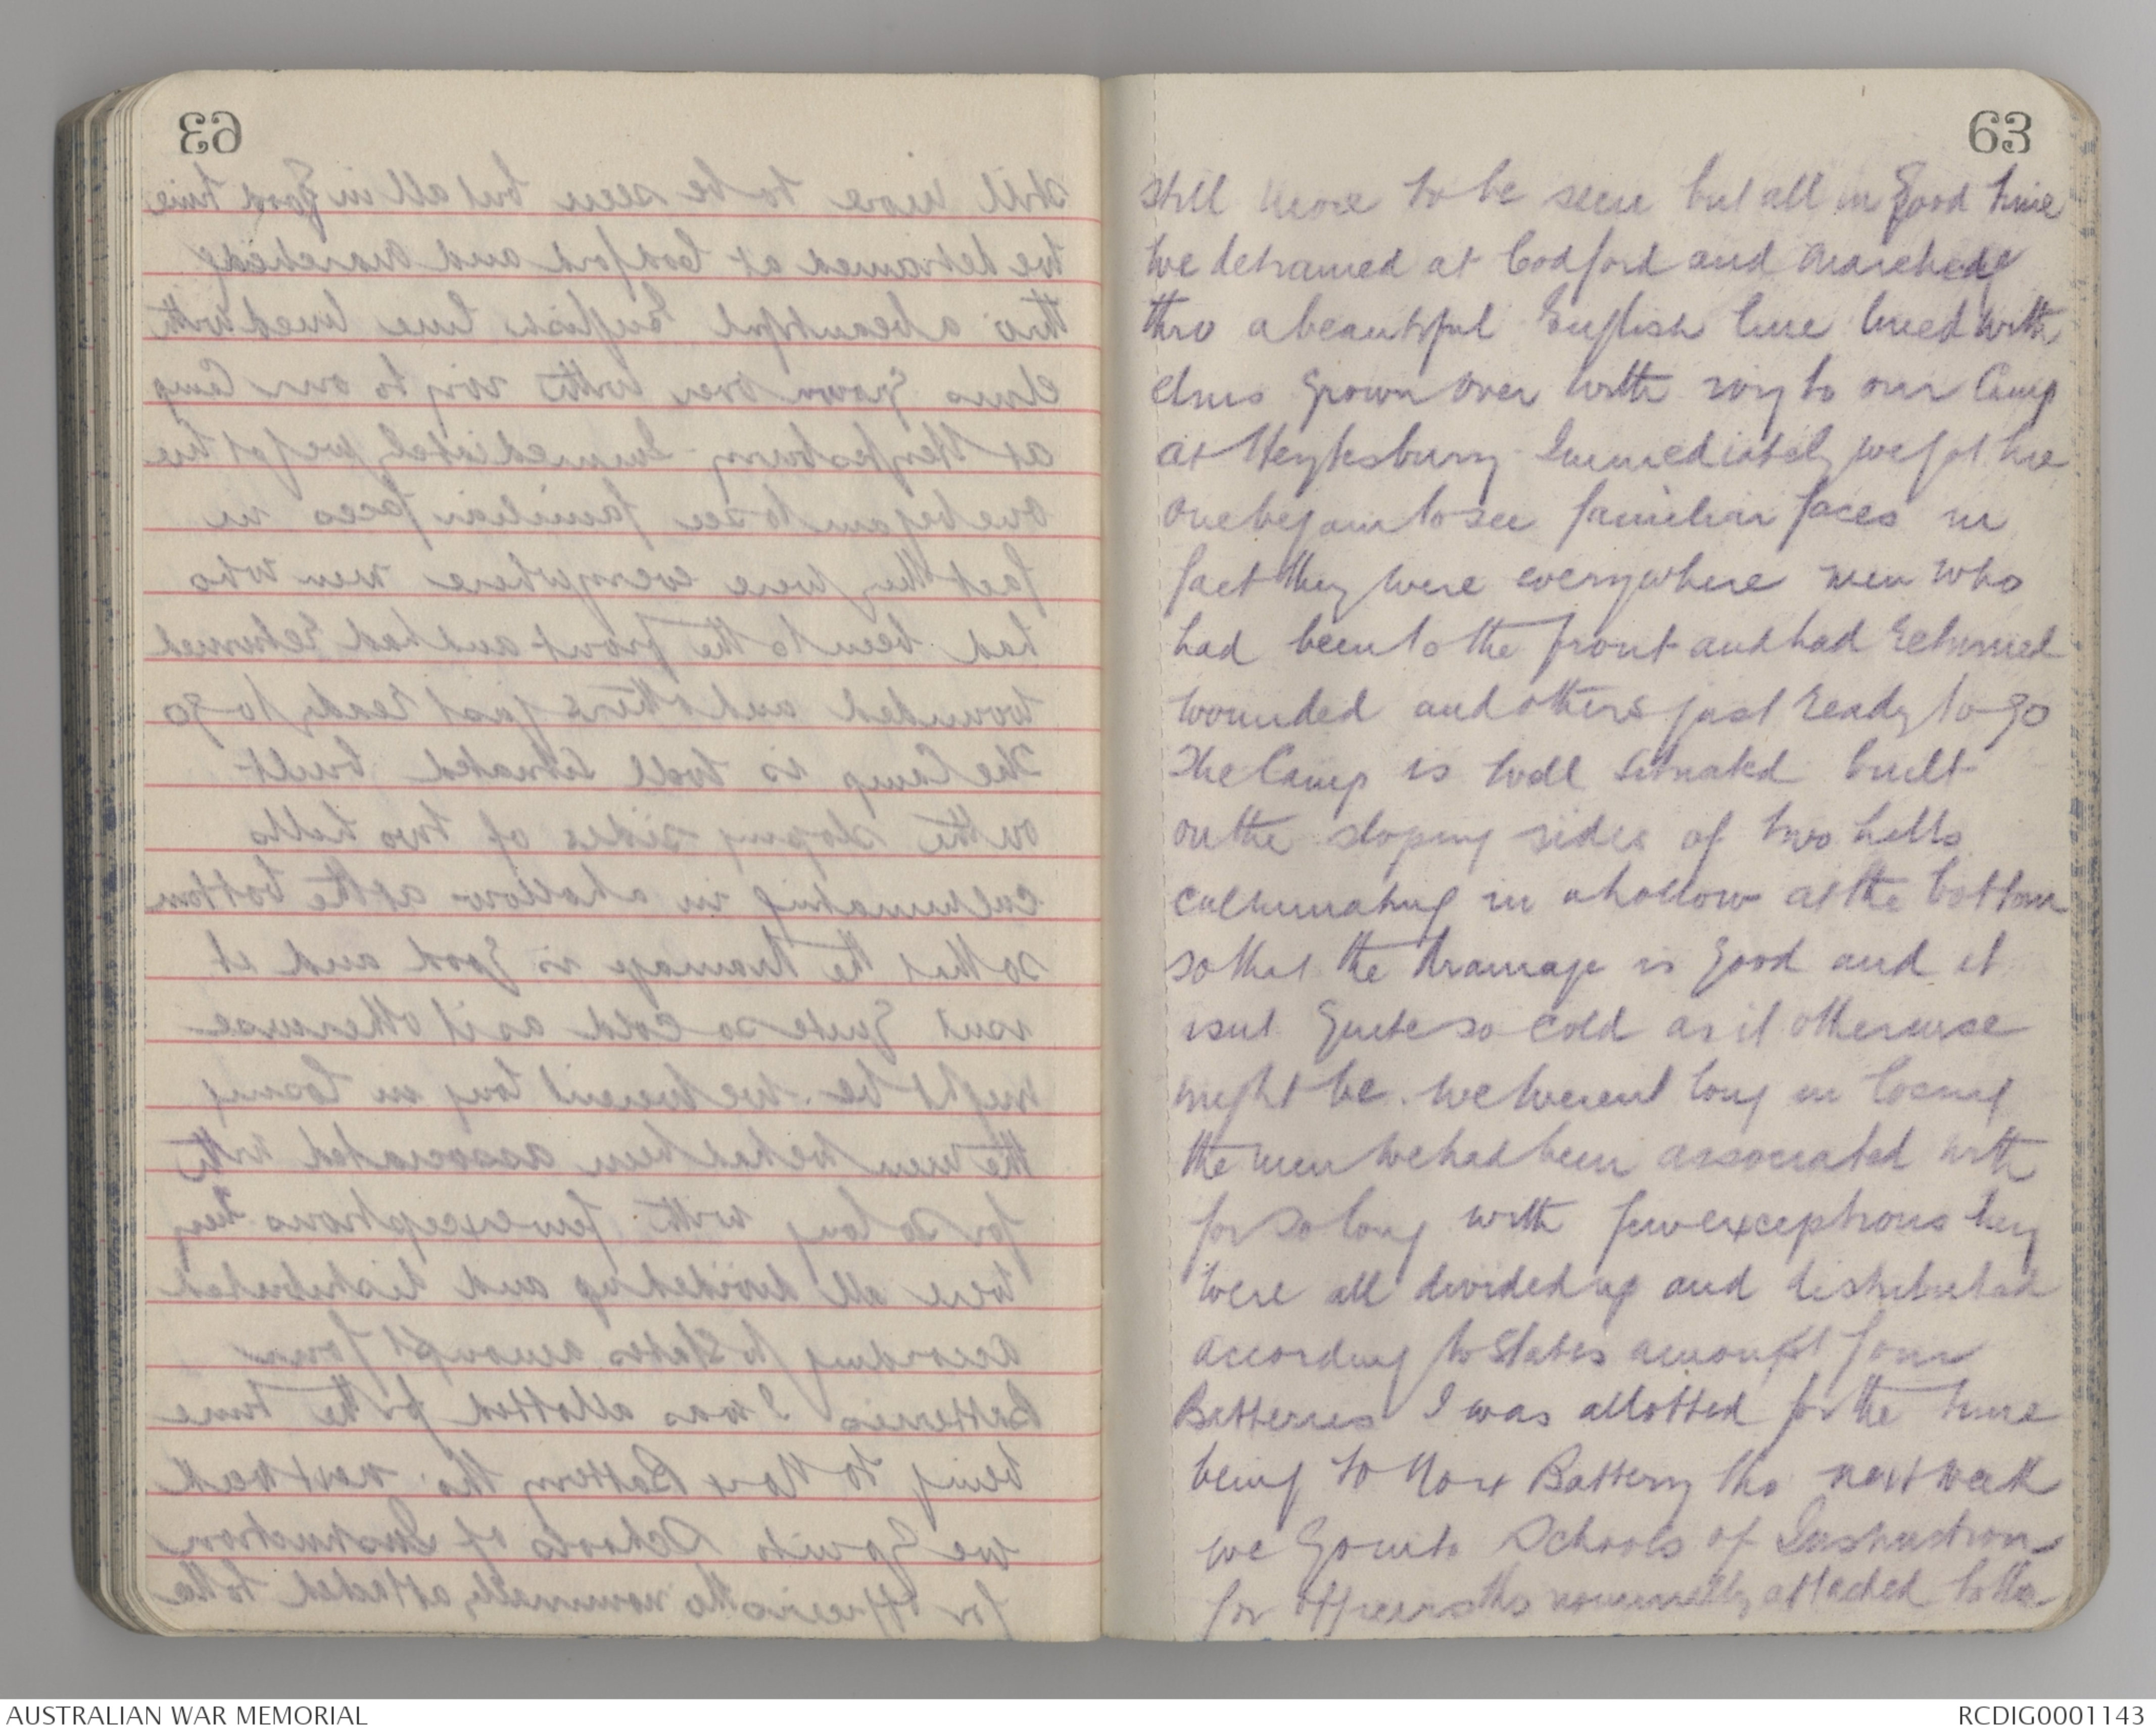 63
63
still more to be seen but all in good time
we detrained at Codford and marched
thro a beautiful English lane lined with
elms grown over with ivy to our Camp
at Heytesbury Immediately we got here
one began to see familiar faces in
fact they were everywhere men who
had been to the front and had returned
wounded and others just ready to go
The Camp is well situated built
on the sloping sides of two hills
culminating in a hollow at the bottom
so that the drainage is good and it
isnt quite so cold as it otherwise
might be. we werent long in losing
the men we had been associated with
for so long with few exceptions they
were all divided up and distributed
according to States amongst four
Batteries I was allotted for the time
being to No 4 Battery tho next week
we go into Schools of Instruction
for officers tho nominally attached to the
AUSTRALIAN WAR MEMORIAL
RCDIG0001143